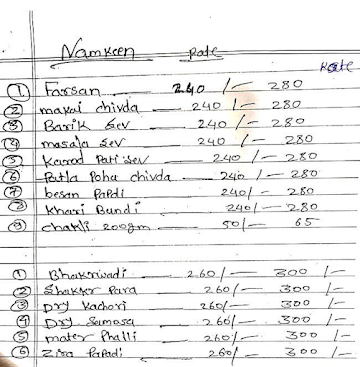 Namkeen Rate
Rate
① Farsan — 240 /- 280
② makai chivda — 240 /- 280
③ Barik Sev — 240 /- 280
④ masala sev — 240 /- 280
⑤ Karod Pati sev — 240 /- 280
⑥ Patla Poha chivda — 240 /- 280
⑦ besan PaPdi 240/- 280
⑧ khari Bundi 240/- 280
⑨ chakli 200gm — 50/- 65
① Bhakriwadi — 260/- 300 /-
② Shakker Para 260/- 300 /-
③ Dry Kachori 260/- 300 /-
④ Dry Samosa 260/- 300 /-
⑤ mater Phalli 260/- 300 /-
⑥ Zira PaPadi 260/- 300 /-